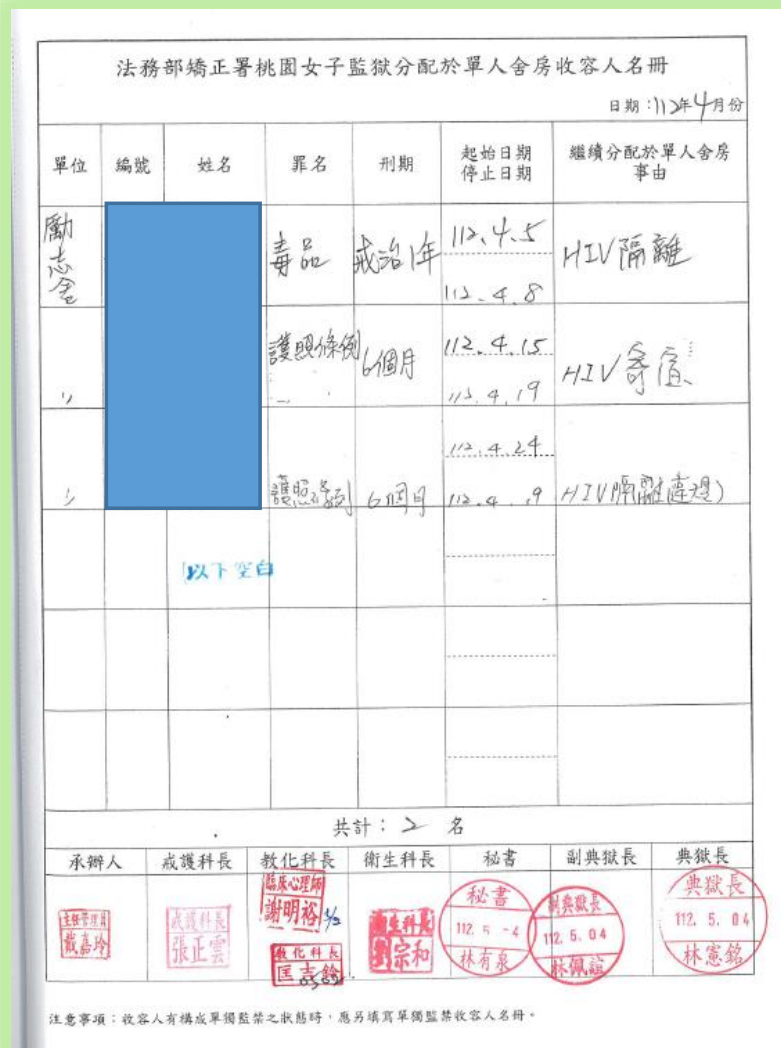 法務部矯正署桃園女子監獄分配於單人舍房收容人名冊
日期：112年4月份
單位 編號 姓名 罪名 刑期 起始日期 停止日期 繼續分配於單人舍房事由
勵志舍 毒品 戒治1年 112.4.5 112.4.8 HIV隔離
護照條例 6個月 112.4.15 112.4.19 HIV寄
護照條例 6個月 112.4.24 112.4. 9 HIV隔離
以下空白
共計：2 名
承辦人 戒護科長 教化科長 衛生科長 秘書 副典獄長 典獄長
主任管理員 戴嘉玲
戒護科長 張正雲
臨床心理師 謝明裕
教化科長 匡吉
0502
衛生科長 劉宗和
秘書 112.5.-4 林有泉
副典獄長 112.5.04 林佩誼
典獄長 112.5.04 林憲銘
注意事項：收容人有構成單獨監禁之狀態時，應另填寫單獨監禁收容人名冊。